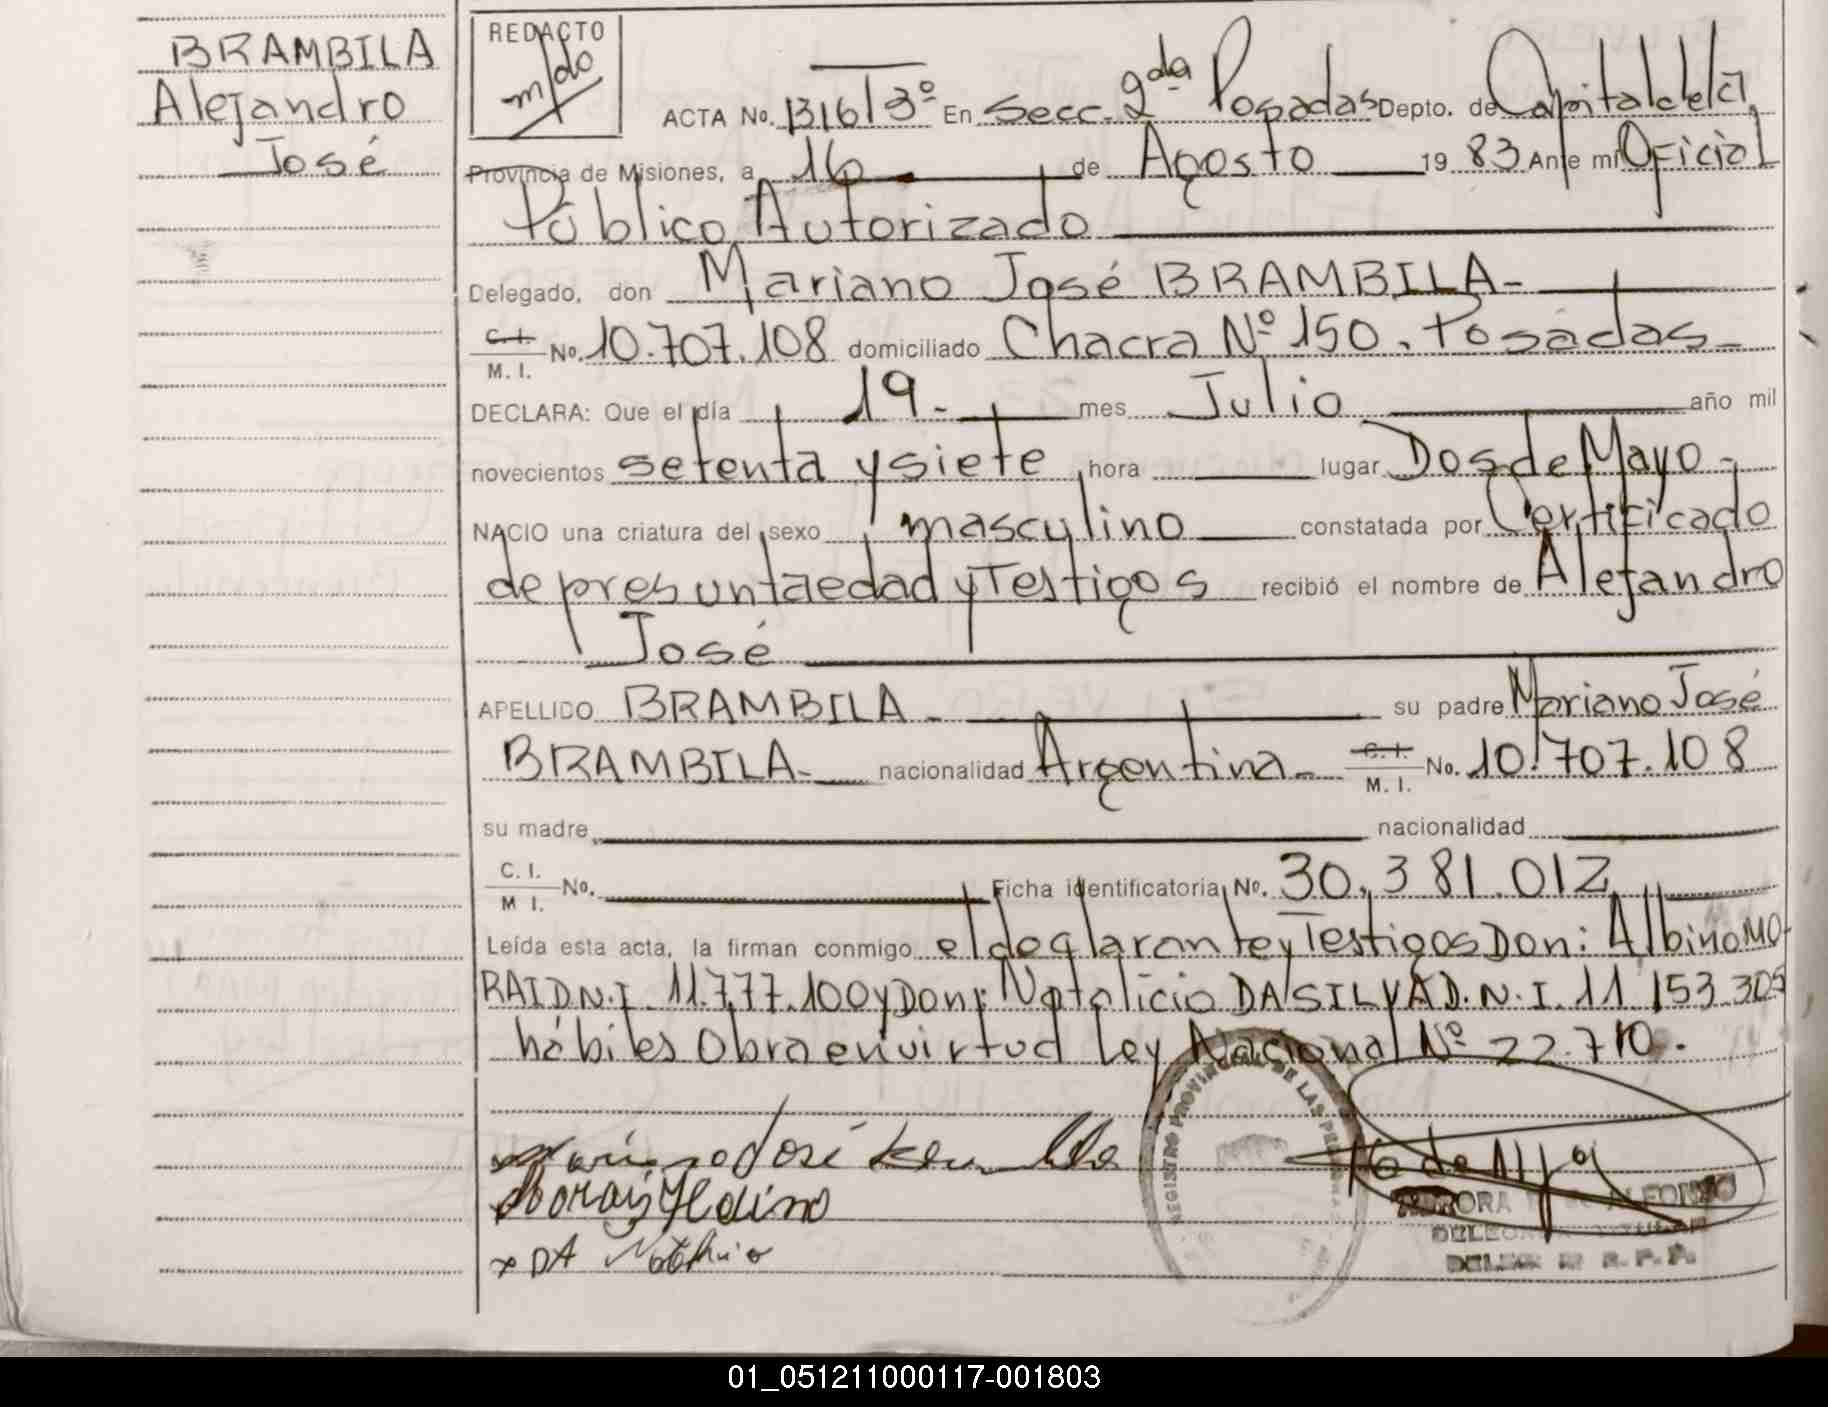 BRAMBILA
Alejandro
José
REDACTO
m/do
ACTA No. 1316/3º En Secc. 2da Posadas Depto. de Capital de la
Provincia de Misiones, a 16 de Agosto 19 83 Ante mí Oficial
Público Autorizado
Delegado, don Mariano José BRAMBILA-
C. I. / M. I. No. 10.707.108 domiciliado Chacra Nº 150. Posadas-
DECLARA: Que el día 19- mes Julio año mil
novecientos setenta y siete hora lugar Dos de Mayo-
NACIO una criatura del sexo masculino constatada por Certificado
de presunta edad y Testigos recibió el nombre de Alejandro
José
APELLIDO BRAMBILA- su padre Mariano José
BRAMBILA- nacionalidad Argentina- C. I. / M. I. No. 10.707.108
su madre nacionalidad
C. I. / M I. No. Ficha identificatoria No. 30.381.012
Leída esta acta, la firman conmigo el declarante y Testigos Don: Albino MO-
RAI D.N.I 11.777.100 y Don: Natalicio DA SILVA D.N.I. 11 153 305
hábiles Obra en virtud Ley Nacional Nº 22.710.
REGISTRO PROVINCIAL DE LAS
x DA Natalicio
DELEGADA TITULAR
01_051211000117-001803